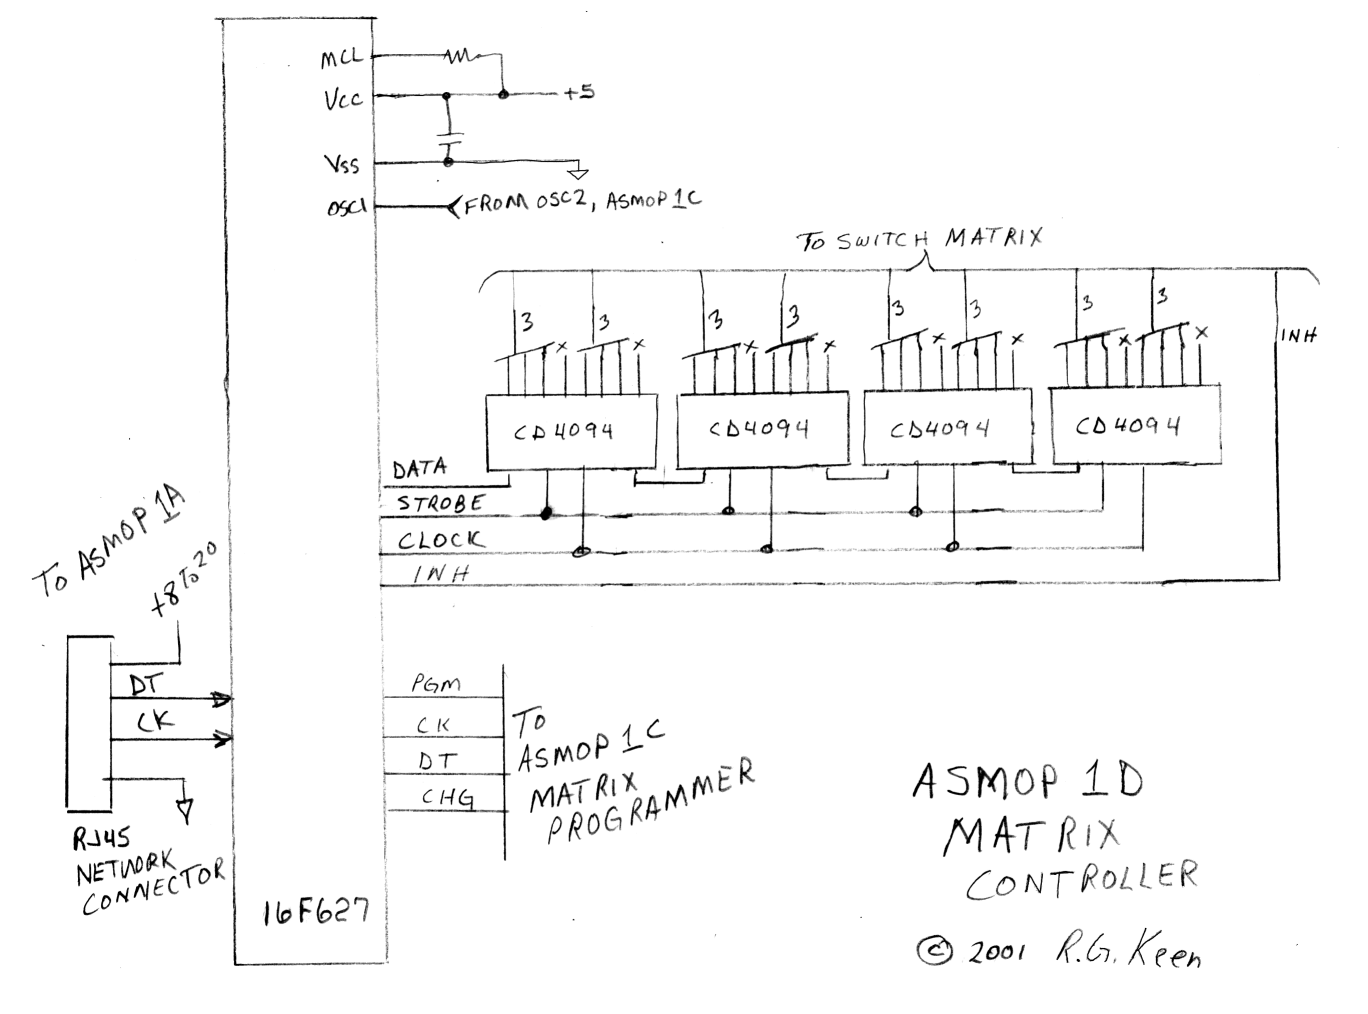 MCL
VCC
+5
VSS
OSC1
FROM OSC2, ASMOP 1C
TO SWITCH MATRIX
3 3 3 3 3 3 3 3
INH
x x x x x x x x
CD4094 CD4094 CD4094 CD4094
DATA
STROBE
CLOCK
INH
TO ASMOP 1A
+8 TO 20
DT
CK
RJ45
NETWORK
CONNECTOR
PGM
CK
DT
CHG
TO
ASMOP 1C
MATRIX
PROGRAMMER
16F627
ASMOP 1D
MATRIX
CONTROLLER
© 2001 R.G. Keen